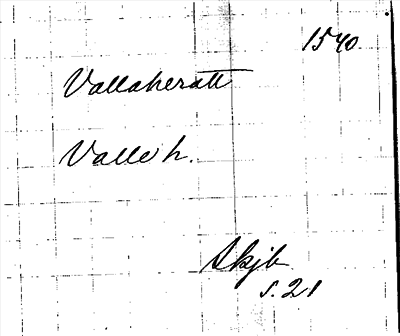 1540.
Vallaheratt
Valle h.
Skjb
s. 21